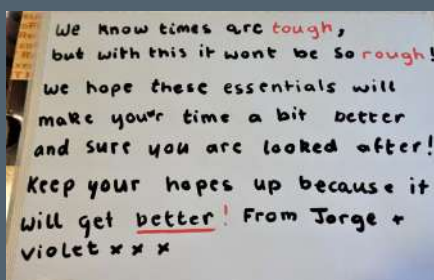 We know times are tough,
but with this it wont be so rough!
we hope these essentials will
make your time a bit better
and sure you are looked after!
Keep your hopes up because it
will get better! From Jorge +
violet x x x